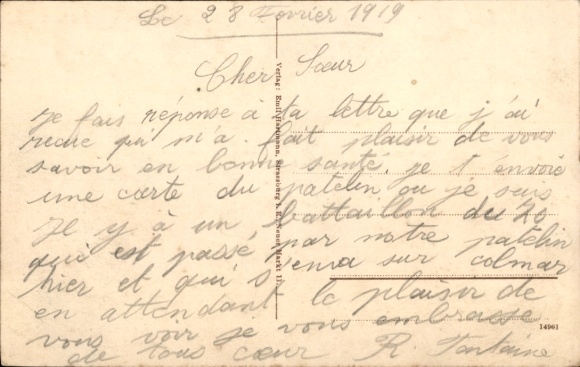 Le 28 Fevrier 1919
Cher Sœur
Je fais réponse à ta lettre que j'ai
recue qui m'a fait plaisir de vous
savoir en bonne santé. je t'envoie
une carte du patelin ou je suis
Je y à un battaillon du 70
qui est passé par notre patelin
hier et qui s'en va sur Colmar
en attendant le plaisir de
vous voir je vous embrasse
de tous cœur R Fontaine
Verlag: Emil Hartmann, Strassburg i. E., Neuer Markt 11.
14901